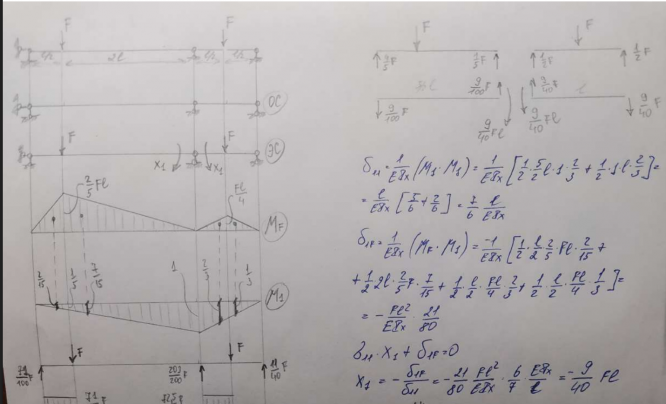 F F
l/2 2l l/2 l/2
ОС
F F
X₁ X₁
ЭС
2/5 Fl Fl/4
M_F
2/15 1/5 7/15 1 2/3 1/3
M₁
F F
71/100 F 203/200 F 11/40 F
71/
F F
3/5 F 1/2 F 1/2 F
9/100 F 9/100 F 9/40 F 9/40 F
9/40 Fl 9/40 Fl
δ₁₁ = 1/EJx (M₁ · M₁) = 1/EJx [1/2 · 5/2 l · 1 · 2/3 + 1/2 · 1 · l · 2/3] =
= l/EJx [5/6 + 2/6] = 7/6 l/EJx
δ₁F = 1/EJx (M_F · M₁) = -1/EJx [1/2 · l/2 · 2/5 · Fl · 2/15 +
+ 1/2 2l · 2/5 F · 7/15 + 1/2 · l/2 · Fl/4 · 2/3 + 1/2 · l/2 · Fl/4 · 1/3] =
= - Fl²/EJx · 21/80
δ₁₁ · X₁ + δ₁F = 0
X₁ = - δ₁F/δ₁₁ = -21/80 Fl²/EJx · 6/7 EJx/l = -9/40 Fl